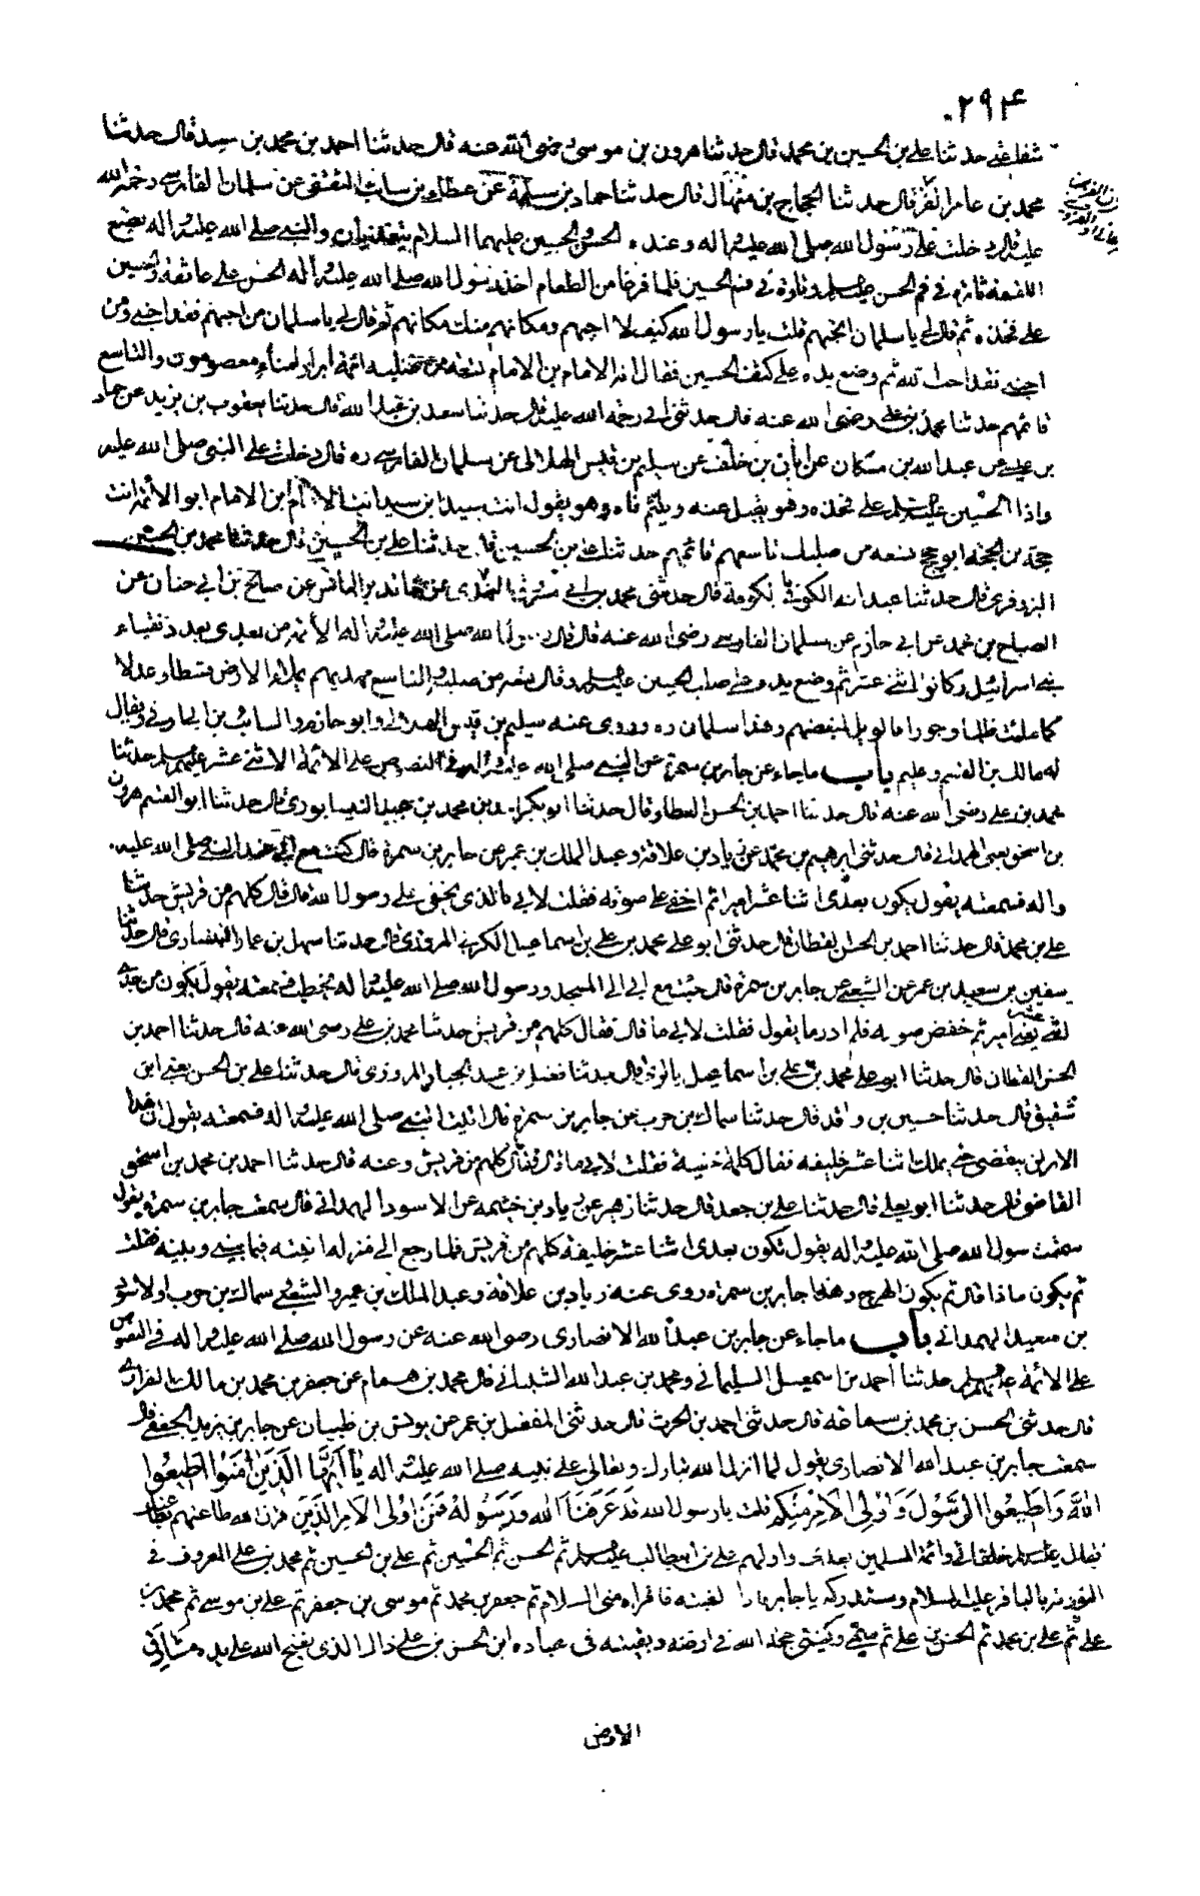 ٢٩٤
شفاعتي حدثنا علي بن الحسين بن محمد قال حدثنا هرون بن موسى رضى الله عنه قال حدثنا احمد بن محمد بن سعيد قال حدثنا
محمد بن عامر قال حدثنا الحجاج بن منهال قال حدثنا حماد بن سلمة عن عطاء بن سائب الثقفي عن سلمان الفارسي رحمة الله
عليه قال دخلت على رسول الله صلى الله عليه واله وعنده الحسن والحسين عليهما السلام يتغديان والنبي صلى الله عليه واله يضع
اللقمة تارة في فم الحسن عليه السلم وتارة في فم الحسين فلما فرغا من الطعام اخذ رسول الله صلى الله عليه واله الحسن على عاتقه والحسين
على فخذه ثم قال لي يا سلمان اتحبهم قلت يا رسول الله كيف لا احبهم ومكانهم منك مكانهم ثم قال لي يا سلمان من احبهم فقد احبني ومن
احبني فقد احب الله ثم وضع يده على كتف الحسين فقال انه الامام بن الامام تسعة من صلبه ائمة ابرار امناء معصومون والتاسع
قائمهم حدثنا محمد بن علي رضى الله عنه قال حدثني ابي رحمة الله عليه قال حدثنا سعد بن عبد الله قال حدثنا يعقوب بن يزيد عن حماد
بن عيسى عن عبد الله بن مسكان عن ابان بن خلف عن سليم بن قيس الهلالي عن سلمان الفارسي ره قال دخلت على النبي صلى الله عليه
واذا الحسين عليه السلم على فخذه وهو يقبل عينه ويلثم فاه وهو يقول انت سيد ابن سيد انت الامام بن الامام ابو الائمة انت
حجة بن الحجة ابو حجج تسعة من صلبك تاسعهم قائمهم حدثنا علي بن الحسين قال حدثنا علي بن الحسين قال حدثنا محمد بن الحسين
البزوفري قال حدثنا عبد الله الكوفي بكوفة قال حدثني محمد بن ابي مسروق النهدي عن عن صالح بن ابي حنان عن
الصباح بن محمد عن ابي حازم عن سلمان الفارسي رضى الله عنه قال قال رسول الله صلى الله عليه واله الأئمة من بعدي بعدد نقباء
بني اسرائيل وكانوا اثني عشر ثم وضع يده على صلب الحسين عليه السلم وقال تسعة من صلبه والتاسع مهديهم يملا الارض قسطا وعدلا
كما ملئت ظلما وجورا فالويل لمبغضيهم وهذا سلمان ره وروى عنه سليم بن قيس الهلالي وابو حازم والسائب بن
باب ما جاء عن جابر بن سمرة عن النبي صلى الله عليه واله في النصوص على الائمة الاثني عشر عليهم السلم حدثنا
محمد بن علي رضى الله عنه قال حدثنا احمد بن الحسن القطان قال حدثنا ابو بكر احمد بن محمد بن عبيد النيسابوري قال حدثنا ابو القسم هرون
بن اسحق يعني الهمداني قال حدثني ابرهيم بن محمد عن زياد بن علاقة وعبد الملك بن عمير عن جابر بن سمرة قال كنت مع ابي عند النبي صلى الله عليه
واله فسمعته يقول يكون بعدي اثنا عشر اميرا ثم اخفى على صوته فقلت لابي ما الذي يخفي علي رسول الله قال قال كلهم من قريش حدثنا
علي بن محمد قال حدثنا احمد بن الحسن القطان قال حدثني ابو علي محمد بن علي بن اسماعيل المروزي قال حدثنا سهل بن عمار النيسابوري قال حدثنا
سفين بن سعيد بن عمر عن الشعبي عن جابر بن سمرة قال جئت مع ابي الى المسجد ورسول الله صلى الله عليه واله يخطب فسمعته يقول يكون من بعدي
اثني عشر امير ثم خفض صوته فلم ادر ما يقول فقلت لابي ما قال فقال كلهم من قريش حدثنا محمد بن علي رضى الله عنه قال حدثنا احمد بن
الحسن القطان قال حدثنا ابو علي محمد بن علي بن اسماعيل قال حدثنا فضل بن عبد الجبار المروزي قال حدثنا علي بن الحسن يعني ابن
شقيق قال حدثنا حسين بن واقد قال حدثنا سماك بن حرب عن جابر بن سمرة قال اتيت النبي صلى الله عليه واله فسمعته يقول ان هذا
الامر لن ينقضي حتى يملك اثنا عشر خليفة فقال كلمة خفية فقلت لابي ما قال فقال كلهم من قريش وعنه قال حدثنا احمد بن محمد بن اسحق
القاضي قال حدثنا ابو يعلي قال حدثنا علي بن جعد قال حدثنا زهير عن زياد بن خيثمة عن الاسود الهمداني قال سمعت جابر بن سمرة يقول
سمعت رسول الله صلى الله عليه واله يقول تكون بعدي اثنا عشر خليفة كلهم من قريش فلما رجع الى منزله اتيته فيما بيني وبينه فقلت
ثم يكون ماذا قال ثم يكون الهرج وهذا جابر بن سمرة روى عنه زياد بن علاقة وعبد الملك بن عمير والشعبي وسماك بن حرب والاسود
بن سعيد الهمداني باب ما جاء عن جابر بن عبد الله الانصاري رضى الله عنه عن رسول الله صلى الله عليه واله في النصوص
على الائمة عليهم السلم حدثنا احمد بن اسمعيل السليماني ومحمد بن عبد الله الشيباني قال محمد بن همام عن جعفر بن محمد بن مالك الفزاري
قال حدثني الحسن بن محمد بن سماعة قال حدثني احمد بن الحرث قال حدثني المفضل بن عمر عن يونس بن ظبيان عن جابر بن يزيد الجعفي قال
سمعت جابر بن عبد الله الانصاري يقول لما انزل الله تبارك وتعالى على نبيه صلى الله عليه واله يا أيها الذين آمنوا اطيعوا
الله واطيعوا الرسول واولي الامر منكم قلت يا رسول الله قد عرفنا الله ورسوله فمن اولى الامر الذين قرن الله طاعتهم بطاعتك
فقال عليه السلم خلفائي وائمة المسلمين بعدي اولهم علي بن ابيطالب عليه السلم ثم الحسن ثم الحسين ثم علي بن الحسين ثم محمد بن علي المعروف في
التورية بالباقر عليه السلام وستدركه يا جابر فاذا لقيته فاقراه مني السلام ثم جعفر بن محمد ثم موسى بن جعفر ثم علي بن موسى ثم محمد بن
علي ثم علي بن محمد ثم الحسن بن علي ثم سميي وكنيتي حجة الله في ارضه وبقيته في عباده ابن الحسن بن علي ذاك الذي يفتح الله على يده مشارق
الارض